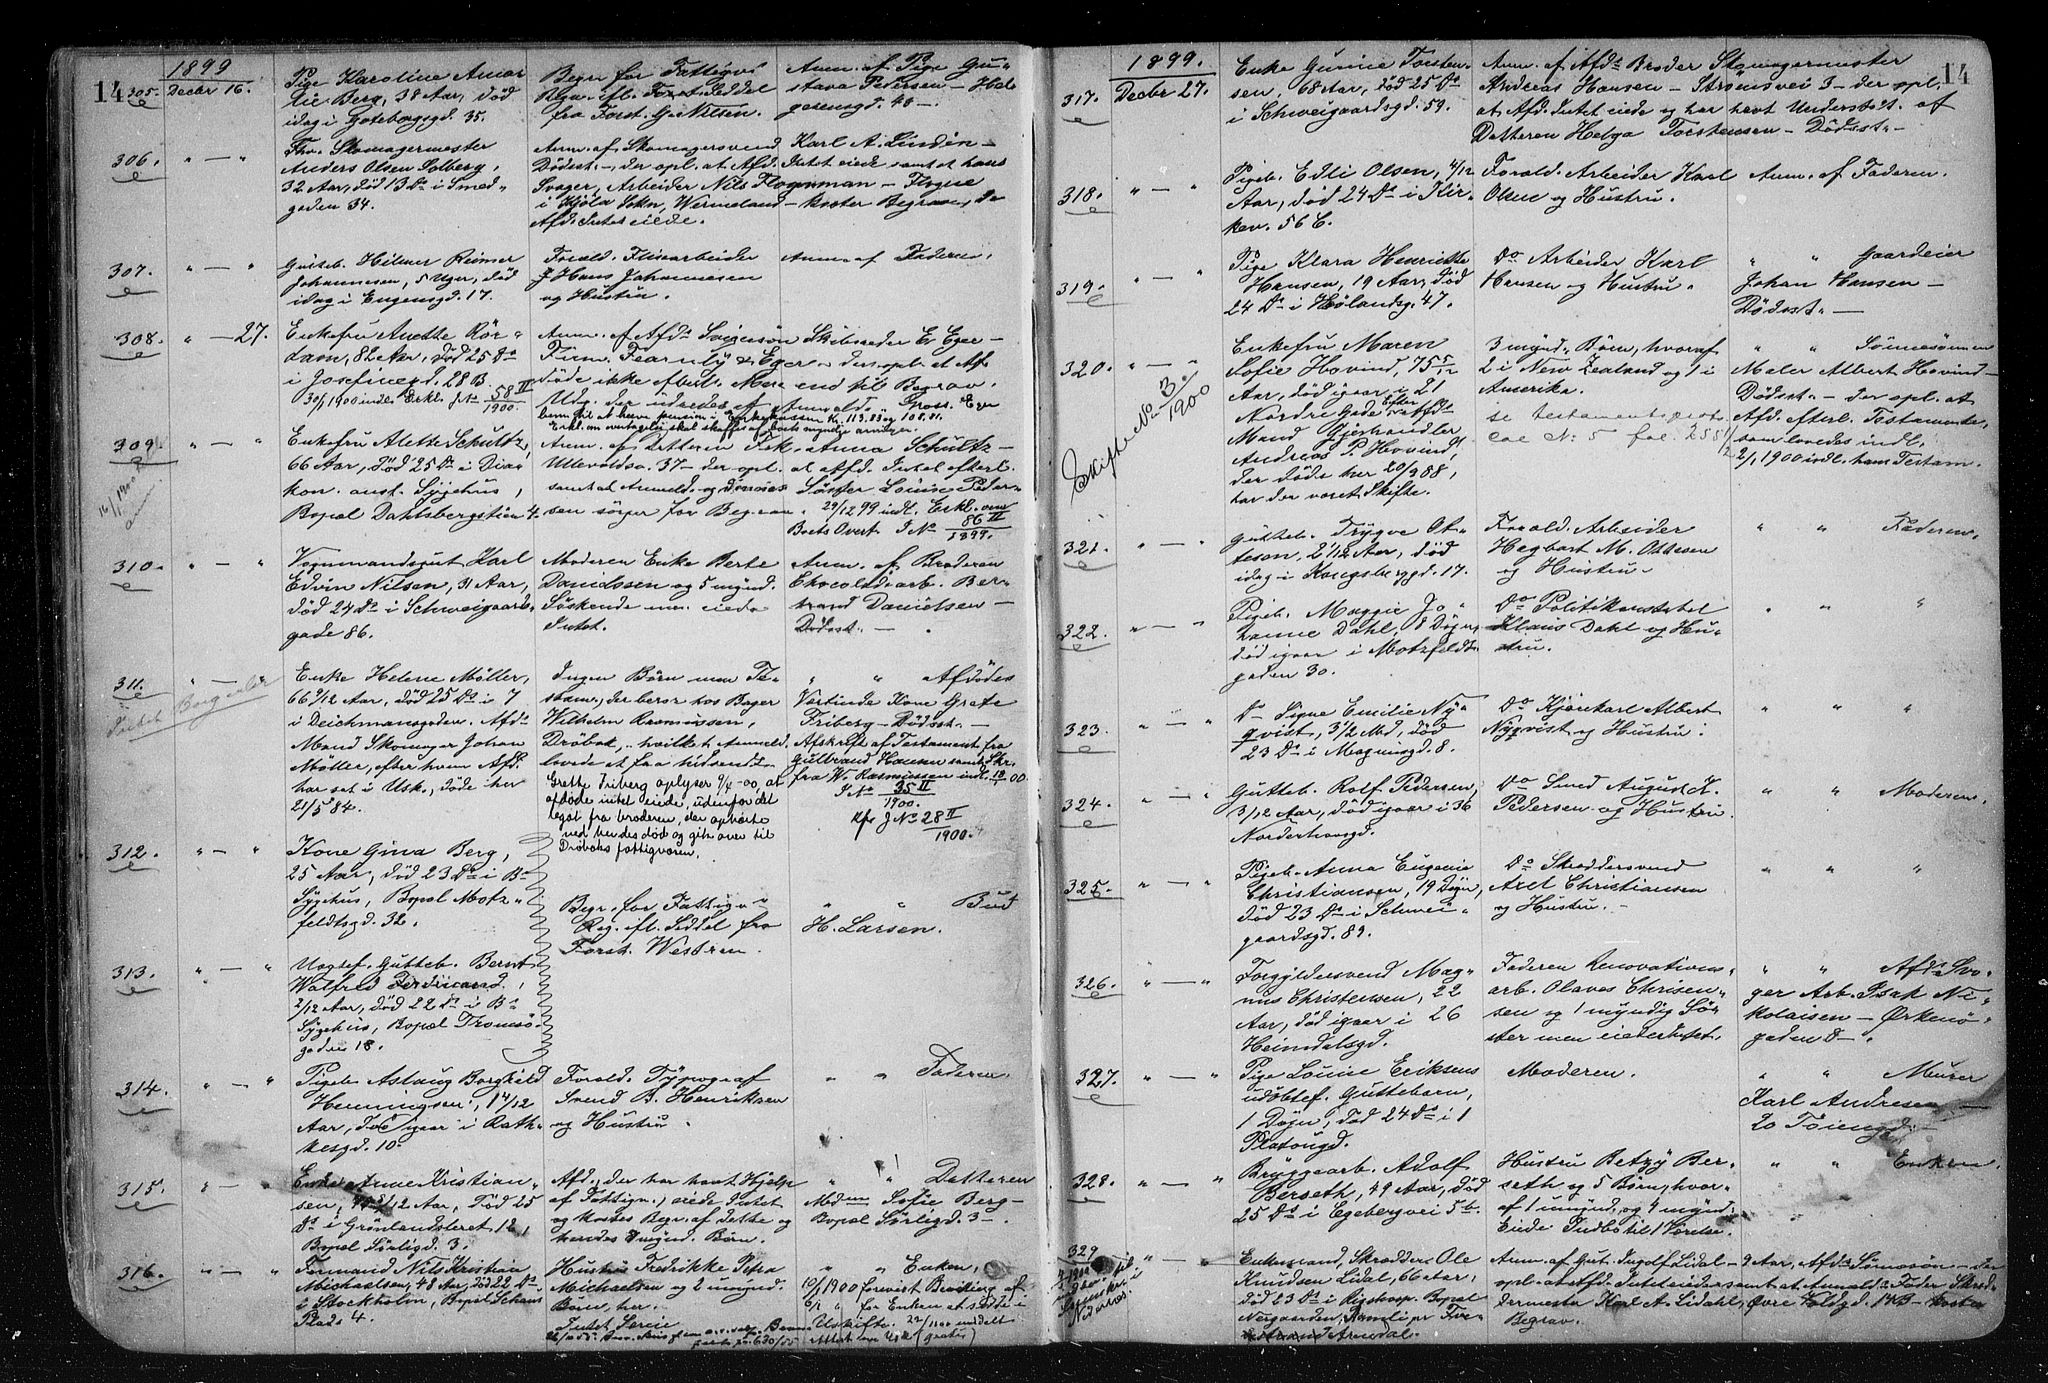 14
1899
305.
Decbr 16.
Pige Karoline Amar
lie Berg, 38 Aar, død
idag i Gøteborgsgd. 35.
Begr. for Fattigv.
Regn. ifl. Forst. Seddel
fra Forst. G. Nilsen.
Anm. af Pige Gu-
stava Petersen - Hel
gesensgd. 40 -.
306.
" — "
Fhv. Skomagermester
Anders Olsen Solberg,
32 Aar, død 13 Ds i Smed-
gaden 34.
Anm. af Skomagersvend Karl A. Lindén -
Dødsst. -, der opl. at Afd. Intet eiede samt at hans
Svager, Arbeider Nils
i Kjøla Sokn, Wermeland - koster Begravn. da
Afd. Intet eiede.
307.
" — "
Gutteb. Hilmar Reimer
Johannesen, 5 Uger, død
idag i Eugensgd. 17.
Foræld. Flisarbeider
Hans Johannesen
og Hustru.
Anm. af Faderen.
308.
" — 27.
Enkefru Anette Rør-
dam, 82 Aar, død 25 Ds
i Josefinegd. 28 B.
30/1 1900 indl. Erkl. J No 58 II
1900.
Anm. af Afds Svigersøn Skibsreder Er. Eger -
Firm. Fearnly & Eger - der opl. at Af-
døde ikke efterl. Mere end til Begrav.
Udg. der udredes af Anmeld. Gross. Eger
309.
" — "
Enkefru Alette Schultz,
66 Aar, død 25 Ds i Dia-
kon. anst. Sygehus,
Bopæl Dahlsbergstien 4.
Anm. af Datteren Frk. Anna Schultz -
Ullevoldsv. 37 - der opl. at Afd. Intet efterl.
samt at Anmeld. og Søster Louise Peder-
sen sørger for Begrav. 29/12 99 indl. Erkl. om
Boets Overt. J No 86 II
1899.
16/1 1900
310.
" — "
Vognmandsgut Karl
Edvin Nilsen, 31 Aar,
død 24 Ds i Schweigaards-
gade 86.
Moderen Enke Berte
Danielssen og 5 mynd.
Søskende men eiede
Intet.
Anm. af Broderen
Ekvoldsarb. Ber-
trand Danielsen -
Dødsst. -.
311.
" — "
Intet
Enke Helene Møller,
66 9/12 Aar, død 25 Ds i 7
i Deichmansgaden. Afds
Mand Skomager Johan
Møller, efter hvem Afd.
har sat i Usk., døde her
21/5 84.
Ingen Børn men Te-
stam., der beror hos Bager
Wilhelm Rasmussen,
Drøbak, hvilket Anmeld.
lovede at faa hidsendt.
Grette Friberg oplyser 9/4-00, at
afdøde intet eiede, udenfor det
legat fra broderen, der ophørte
ved hendes død og gik over til
Drøbaks fattigvæsen.
" " Afdødes
Vertinde Kone Grete
Friberg - Dødsst. -
Afskrift af Testament fra
Gulbrand Hansen samt Skr.
fra W. Rasmussen indl. 00.
J No 35 II
1900.
kfr J No 28 II
1900.
312.
" — "
Kone Gina Berg,
25 Aar, død 23 Ds i Bs
Sygehus, Bopæl Motz-
feldtsgd. 32.
Begr. for Fattigv.
Reg. ifl. Seddel fra
Forst. Westrem.
" " Bud
H. Larsen.
313.
" — "
Uægtef. Gutteb. Bernt
Walfred Ferdinand,
2/12 Aar, død 22 Ds i Bs
Sygehus, Bopæl Tromsø-
gaden 18.
314.
" — "
Pigeb. Aslaug Borghild
Henningsen, 1 4/12
Aar, død igaar i Rath-
kesgd. 10.
Foræld. Typograf
Svend B. Henriksen
og Hustru.
" " Faderen.
315.
" — "
Enke Anne Kristian-
sen, Aar, død 25
Ds i Grønlandsleret 12,
Bopæl Sørligd. 3.
Afd., der har havt Hjælp
af Fattigv., eiede Intet
og kostes Begr. af dette og
hendes mynd. Børn.
" " Datteren
Madm Sofie Berg -
Bopæl Sørligd. 3 -.
316.
" — "
Formand Nils Kristian
Michaelsen, 48 Aar, død 22 Ds
i Stockholm, Bopæl Schous
Plads 4.
Hustru Fredrikke Petra
Michaelsen og 2 umynd.
Børn, her.
" " Enken,
10/1 1900 forevist Bevilling af
6/1 " for Enken at sidde i
Uskifte. 22/ 1100 meddelt
Attest om Uskifte (gratis)
14
1899.
317.
Decbr 27.
Enke Gunnie Torsten-
sen, 68 Aar, død 25 Ds
i Schweigaardsgd. 59.
Anm. af Afds Broder Skomagermester
Anders Hansen - Strømsvei 3 - der opl.
at Afd. Intet eiede og har havt Understøt. af
Datteren Helga Torstensen - Dødsst. -
318.
" — "
Pigeb. Edli Olsen, 4/12
Aar, død 24 Ds i Kir-
kev. 56 E.
Foræld. Arbeider Karl
Olsen og Hustru.
Anm. af Faderen.
319.
" — "
Pige Klara Henriette
Hansen, 19 Aar, død
24 Ds i Hølandsg. 47.
Do Arbeider Karl
Hansen og Hustru.
" " Gaardeier
Johan Hansen -
Dødsst. -
320.
" — "
Skifte No 3
1900
Enkefru Maren
Sofie Hovind, 75 5/12
Aar, død igaar i 21
Nordre Gade. Efter Afds
Mand Gjørhandler
Andreas P. Hovind,
der døde her 20/9 88,
har der været Skifte.
3 mynd. Børn, hvoraf
2 i New Zealand og 1 i
Amerika.
se testamentsprot.
No 5 fol. 255 1/2
" " Sønnesønnen
Maler Albert Hovind -
Dødsst. - der opl. at
Afd. efterl. Testamente,
som lovedes indl.
2/1 1900 indl. hans Testam.
321.
" — "
Gutteb. Trygve Ot-
tesen, 2 1/12 Aar, død
idag i Kongsberggd. 17.
Foræld. Arbeider
Hegbart M. Ottesen
og Hustru.
" " Faderen.
322.
" — "
Pigeb. Maggie Jo-
hanne Dahl, 8 Døgn,
død igaar i Motzfeldts-
gaden 30.
Do Politikonstabel
Klaus Dahl og Hu-
stru.
" " "
323.
" — "
Do Signe Emilie Ny-
qvist, 3 1/2 Md, død
23 Ds i Magnusgd. 8.
Do Kjørekarl Albert
Nyqvist og Hustru.
" " "
324.
" — "
Gutteb. Rolf Pedersen,
3/12 Aar, død igaar i 36
Norderhovsgd.
Do Smed August K.
Pedersen og Hustru.
" " Moderen.
325.
" — "
Pigeb. Anna Eugenie
Christiansen, 19 Døgn,
død 23 Ds i Schwei-
gaardsgd. 89.
Do Skræddersvend
Axel Christiansen
og Hustru.
" " "
326.
" — "
Forgyldersvend Mag-
nus Christensen, 22
Aar, død igaar i 26
Heimdalsgd.
Faderen Renovations-
arb. Olaves Chrisen-
sen og 1 myndig Sø-
ster men eiede Intet.
" " Afds Svo-
ger Arb. Isak Ni-
kolaisen - Ørkenø-
gaden 8 -.
327.
" — "
Pige Louise Eriksens
udøbtef. Guttebarn,
1 Døgn, død 24 Ds i 1
Platougd.
Moderen.
" " Murer
Karl Andresen -
20 Tøiengd. -
328.
" — "
Bryggearb. Adolf
Berseth, 49 Aar, død
25 Ds i Egebergvei 5 b.
Hustru Betzy Ber-
seth og 5 Børn, hvor-
af 1 umynd. og 4 mynd.
Eiede Indbo til l. Værdie.
" " Enken.
329
" — "
Enkemand, Skrædder Ole
Knudsen Lidal, 66 Aar,
død 23 Ds i Rigshosp. Bopæl
Nesgaarden,
Arendal.
Anm. af Gut. Ingolf Lidal - 9 Aar, Afds Sønnesøn - der
opl. at Afd. Intet eiede samt at Anmelds Fader Skræd-
dermester Karl A. Lidahl, Øvre Voldgd. 14 B - koster
Begrav.